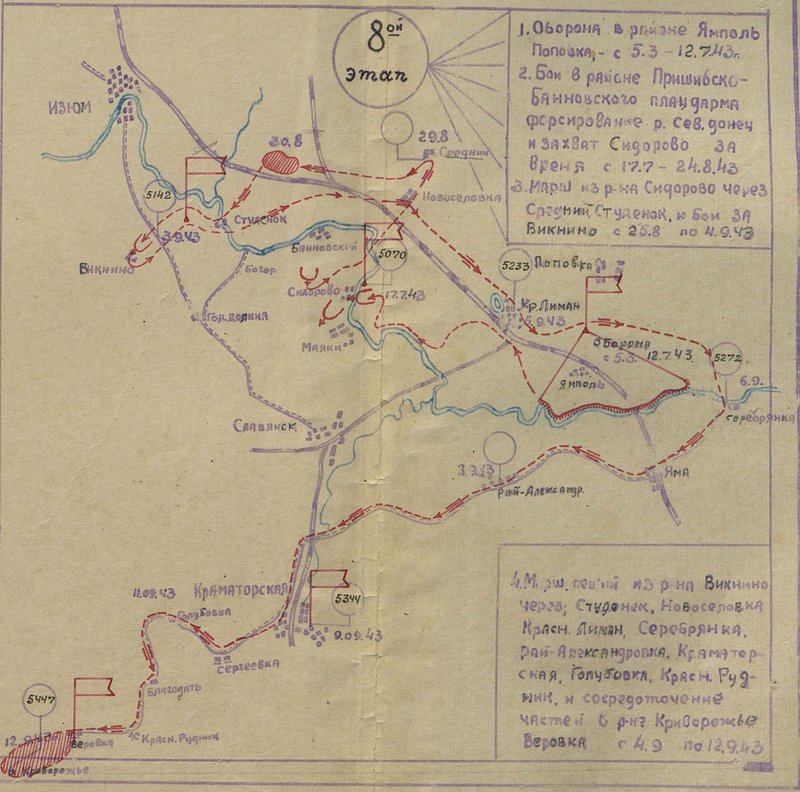 8ой
этап
1. Оборона в районе Ямполь
Поповка, - с 5.3 - 12.7.43г.
2. Бои в районе Пришибско-
Банновского плацдарма
форсирование р. Сев. донец
и захват Сидорово за
время с 17.7 - 24.8.43
3. Марш из р-на Сидорово через
Средний Студенок, и бои за
Викнино с 25.8 по 4.9.43
Изюм
30.8
29.8
Средний
5142
Студенок
Новоселовка
3.9.43
Викнино
Банновский
5070
Богор.
Сидорово
17.7.43
5233
Поповка
Гол. долина
Маяки
Кр. Лиман
5.9.43
Оборона
с 5.3. 12.7.43.
Ямполь
5272
6.9.
Серебрянка
Славянск
Рай-Александр.
Яма
11.09.43
Краматорская
Голубовка
5344
9.09.43
Сергеевка
Благодать
5447
Веровка
Красн. Рудник
Криворожье
4. Марш из р-на Викнино
через; Студенок, Новоселовка
Красн. Лиман, Серебрянка,
Рай-Александровка, Краматор-
ская, Голубовка, Красн. Руд-
ник, и сосредоточение
частей в р-не Криворожье
Веровка с 4.9 по 12.9.43